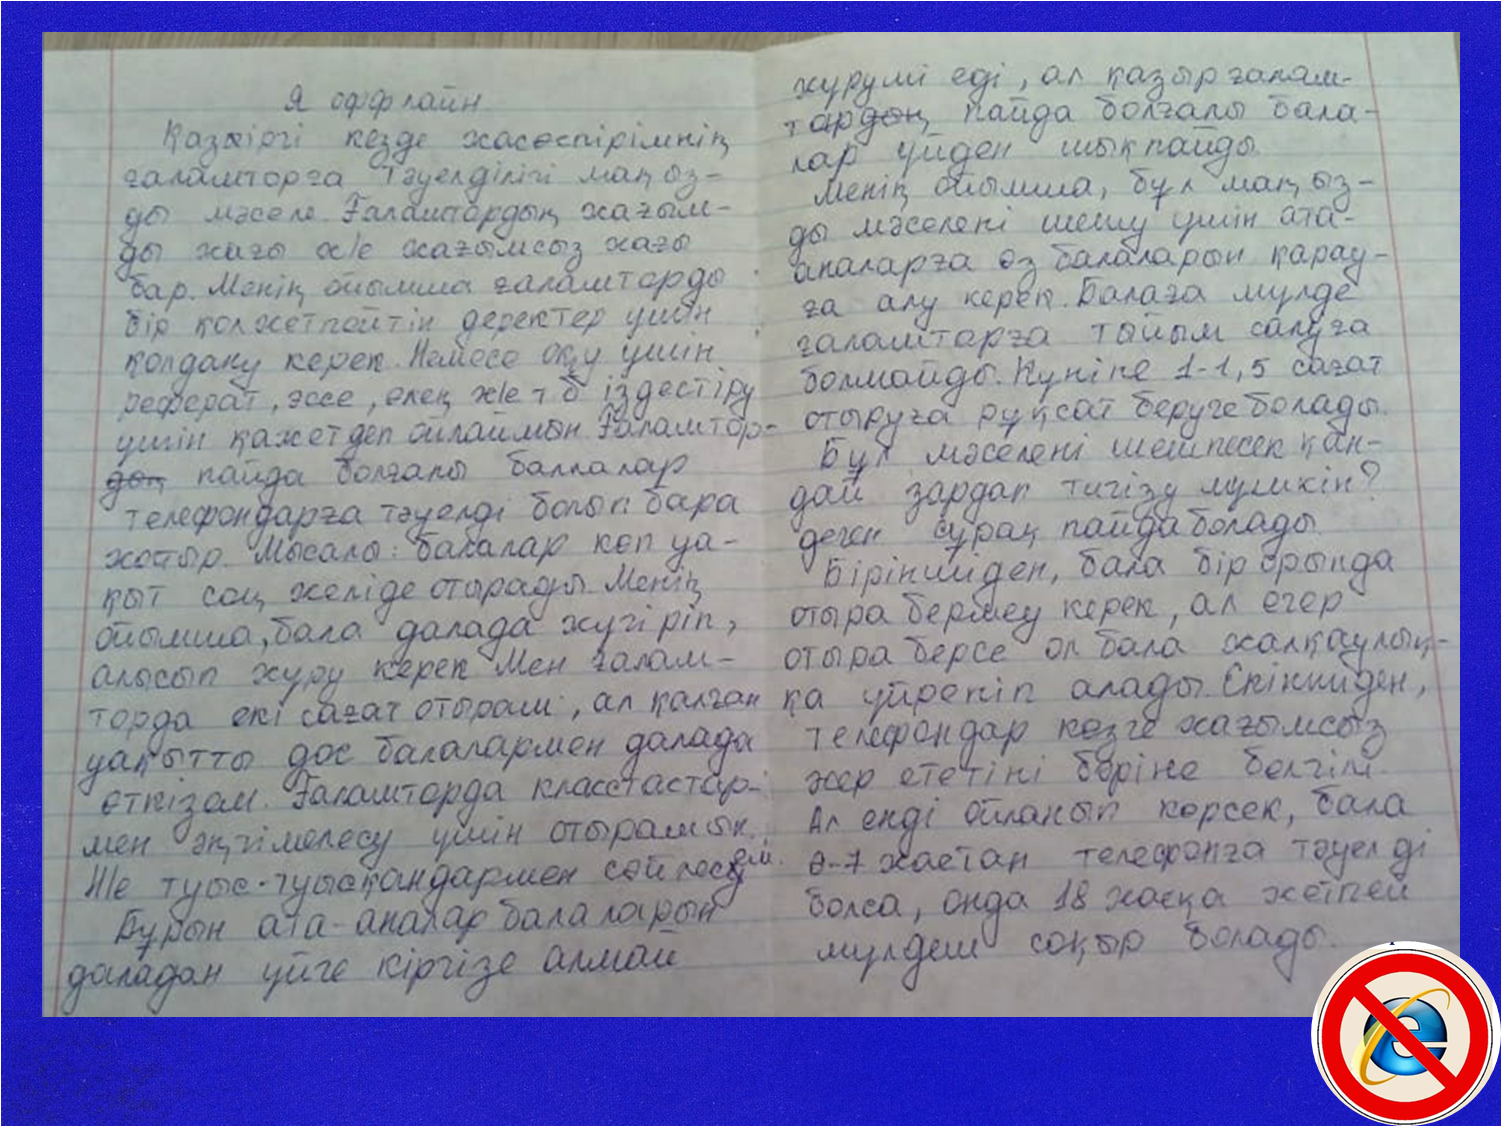 Я оффлайн
Қазіргі кезде жасөспірімнің
ғаламторға тәуелділігі маңыз-
ды мәселе. Ғаламтордың жағым-
ды жағы ж/е жағымсыз жағы
бар. Менің ойымша ғаламторды
бір қолжетпейтін деректер үшін
қолдану керек. Немесе оқу үшін
реферат, эссе, өлең ж/е т б іздестіру
үшін қажет деп ойлаймын. Ғаламтор-
дың пайда болғалы баллалар
телефондарға тәуелді болып бара
жатыр. Мысалы: балалар көп уа-
қыт соц желіде отырады. Менің
ойымша, бала далада жүгіріп,
алысып жүру керек. Мен ғалам-
торда екі сағат отырам, ал қалған
уақытты дос балалармен далада
өткізем. Ғаламторда класстастар-
мен әңгімелесу үшін отырамын.
Ж/е туыс-туысқандармен сөйлесу үш.
Бұрын ата-аналар балаларын
даладан үйге кіргізе алмай
жүруші еді, ал қазір ғалам-
тардың пайда болғалы бала-
лар үйден шықпайды.
Менің ойымша, бұл маңыз-
ды мәселені шешу үшін ата-
аналарға өз балаларын қарау-
ға алу керек. Балаға мүлде
ғаламторға тыйым салуға
болмайды. Күніне 1-1,5 сағат
отыруға рұқсат беруге болады.
Бұл мәселені шешпесек қан-
дай зардап тигізу мүмкін?
деген сұрақ пайда болады.
Біріншіден, бала бір орында
отыра бермеу керек, ал егер
отыра берсе ол бала жалқаулық-
қа үйреніп алады. Екіншіден,
телефондар көзге жағымсыз
әсер ететіні бәріне белгілі.
Ал енді ойланып көрсек, бала
6-7 жастан телефонға тәуелді
болса, онда 18 жасқа жетпей
мүлдем соқыр болады.